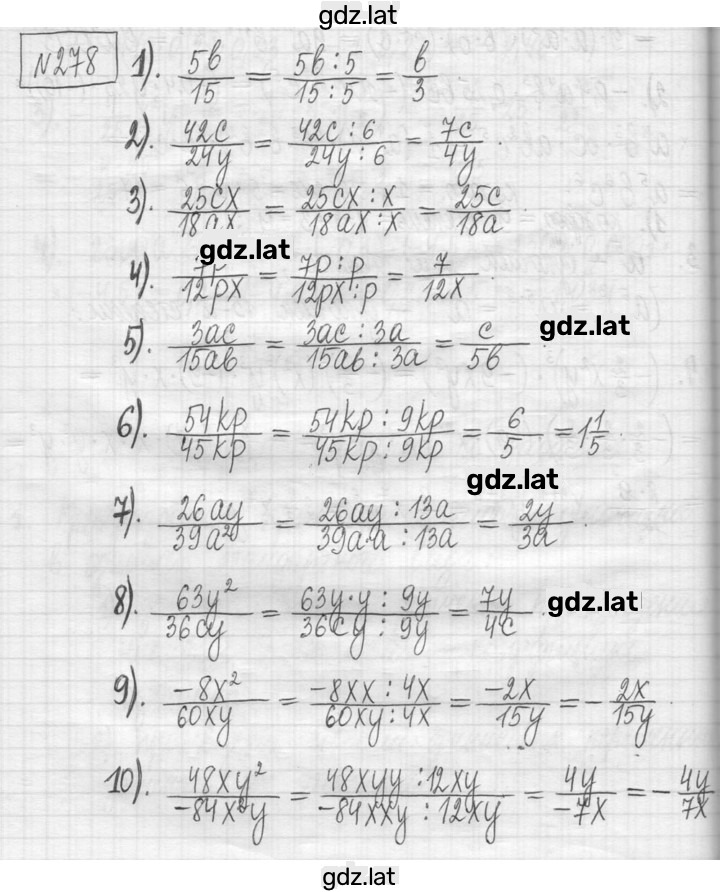 gdz.lat
№278 1). 5в/15 = 5в:5/15:5 = в/3
2). 42c/24y = 42c:6/24y:6 = 7c/4y.
3). 25cx/18ax = 25cx:x/18ax:x = 25c/18a.
gdz.lat
4). /12px = 7p:p/12px:p = 7/12x.
5). 3ac/15ab = 3ac:3a/15ab:3a = c/5b.
gdz.lat
6). 54kp/45kp = 54kp:9kp/45kp:9kp = 6/5 = 1 1/5.
gdz.lat
7). 26ay/39a² = 26ay:13a/39a·a:13a = 2y/3a.
8). 63y²/36cy = 63y·y:9y/36cy:9y = 7y/4c
gdz.lat
9). -8x²/60xy = -8xx:4x/60xy:4x = -2x/15y = -2x/15y.
10). 48xy²/-84x²y = 48xyy:12xy/-84xxy:12xy = 4y/-7x = -4y/7x
gdz.lat